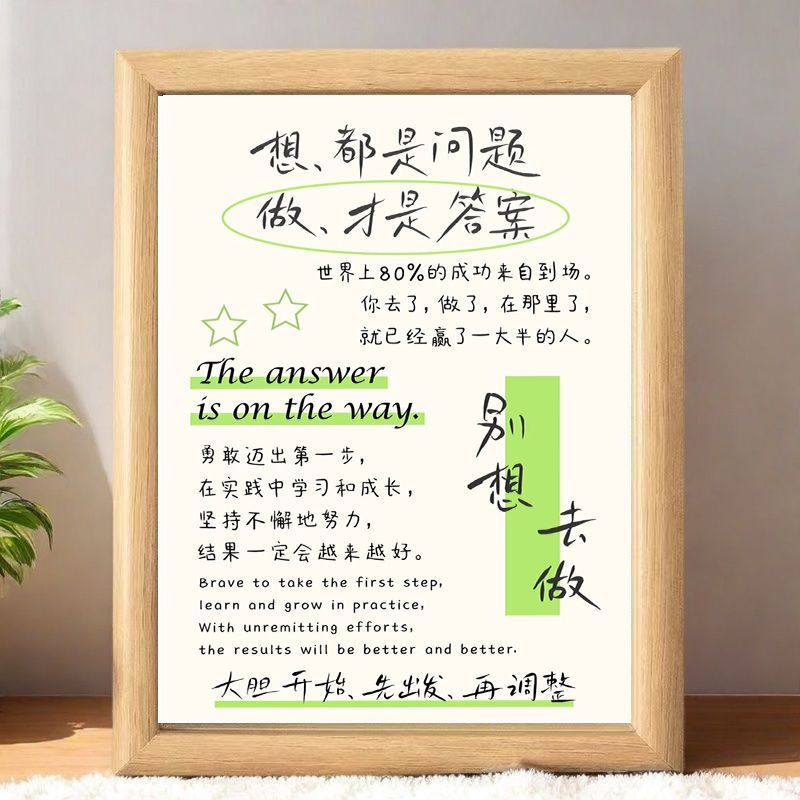 想、都是问题
做、才是答案
世界上80%的成功来自到场。
你去了，做了，在那里了，
就已经赢了一大半的人。
The answer
is on the way.
别想
去做
勇敢迈出第一步，
在实践中学习和成长，
坚持不懈地努力，
结果一定会越来越好。
Brave to take the first step,
learn and grow in practice,
With unremitting efforts,
the results will be better and better.
大胆开始、先出发、再调整